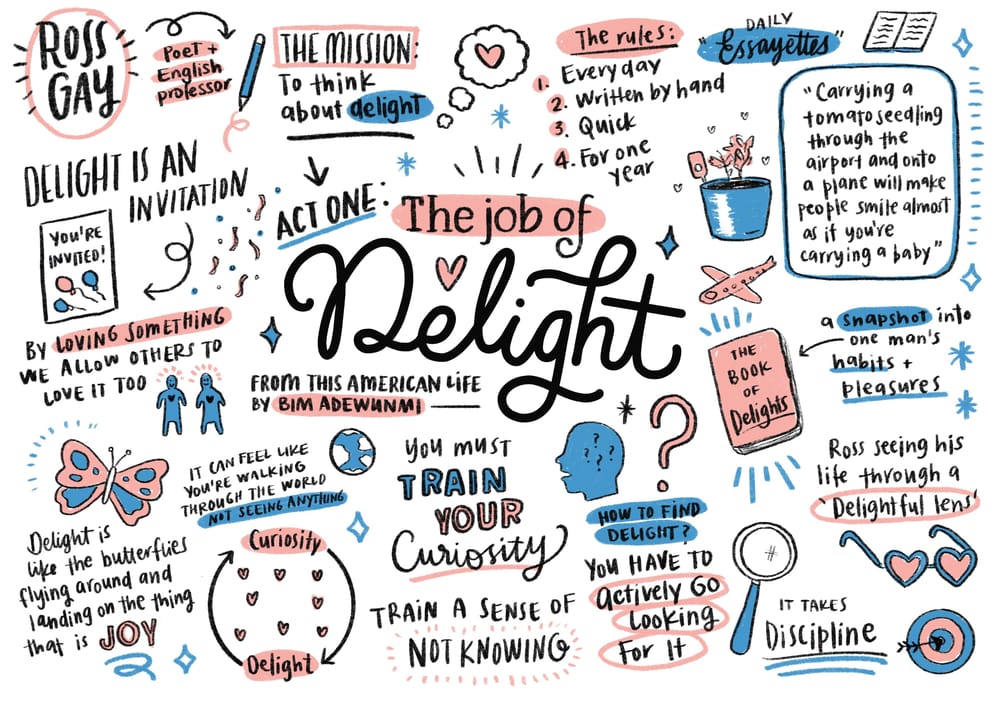 ROSS
GAY
Poet +
English
professor
THE MISSION:
To think
about delight
The rules:
1. Every day
2. Written by hand
3. Quick
4. For one
year
DAILY
"Essayettes"
"Carrying a
tomato seedling
through the
airport and onto
a plane will make
people smile almost
as if you're
carrying a baby"
DELIGHT IS AN
INVITATION
YOU'RE
INVITED!
BY LOVING SOMETHING
WE ALLOW OTHERS TO
LOVE IT TOO
ACT ONE:
The job of
Delight
FROM THIS AMERICAN LIFE
BY BIM ADEWUNMI
THE
BOOK
OF
Delights
a snapshot into
one man's
habits +
pleasures
Delight is
like the butterflies
flying around and
landing on the thing
that is JOY
IT CAN FEEL LIKE
YOU'RE WALKING
THROUGH THE WORLD
NOT SEEING ANYTHING
Curiosity
Delight
YOU MUST
TRAIN
YOUR
Curiosity
TRAIN A SENSE OF
NOT KNOWING
? ? ? ? ?
?
HOW TO FIND
DELIGHT?
YOU HAVE TO
Actively Go
Looking
For It
Ross seeing his
life through a
'Delightful lens'
IT TAKES
Discipline